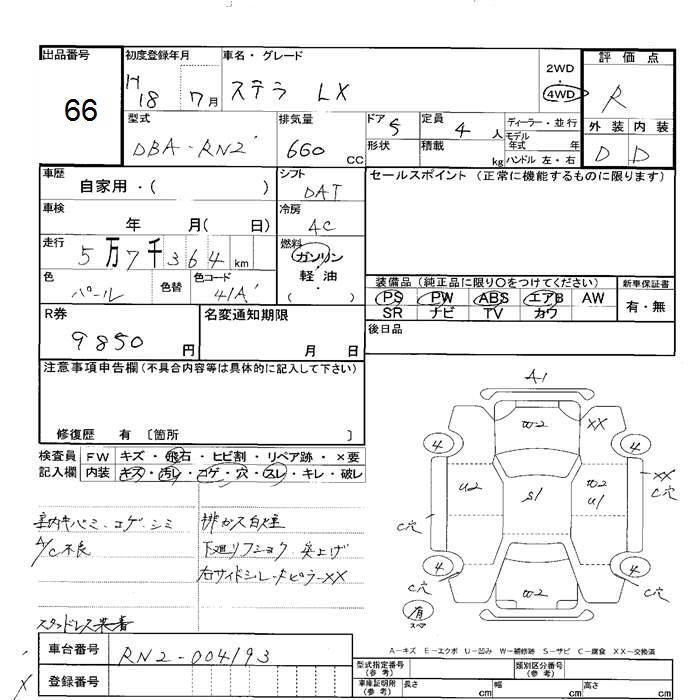 出品番号 66
初度登録年月 H 18 7月
車名・グレード ステラ LX
2WD ・ 4WD
評価点 R
外装 内装
D D
型式 DBA-RN2
排気量 660 CC
ドア 5
形状
定員 4 人
積載 kg
ディーラー・並行
モデル
年式 年
ハンドル 左・右
車歴 自家用・( )
シフト DAT
セールスポイント (正常に機能するものに限ります)
車検 年 月( 日)
冷房 AC
走行 5万7千364 km
燃料 ガソリン
軽・油
( )
色 パール 色替 色コード 41A
装備品 (純正品に限り〇をつけてください)
PS PW ABS エアB AW
SR ナビ TV カワ
新車保証書
有・無
後日品
R券 9850 円
名変通知期限 月 日
注意事項申告欄 (不具合内容等は具体的に記入して下さい)
修復歴 有 〔箇所 〕
検査員 FW キズ・飛石・ヒビ割・リペア跡・×要
記入欄 内装 キズ・汚れ・コゲ・穴・スレ・キレ・破レ
A-1
W2 XX
4 4
U2 S1 W2 U1
XX
C穴
C穴
4 4
C穴 W2 C穴
有
スペア
コゲ・シミ
A/C不良
排ガス白煙
突上げ
右サイドシル ピラーXX
A-キズ E-エクボ U-凹み W-補修跡 S-サビ C-腐食 XX-交換済
車台番号 RN2-004193
登録番号
型式指定番号 (参考)
類別区分番号 (参考)
車庫証明附 (参考) 長さ cm 幅 cm 高さ cm